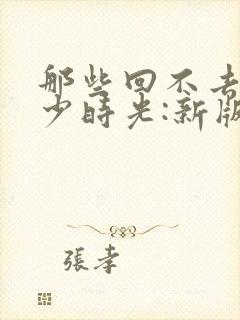 那些回不去
少時光:新版
張幸